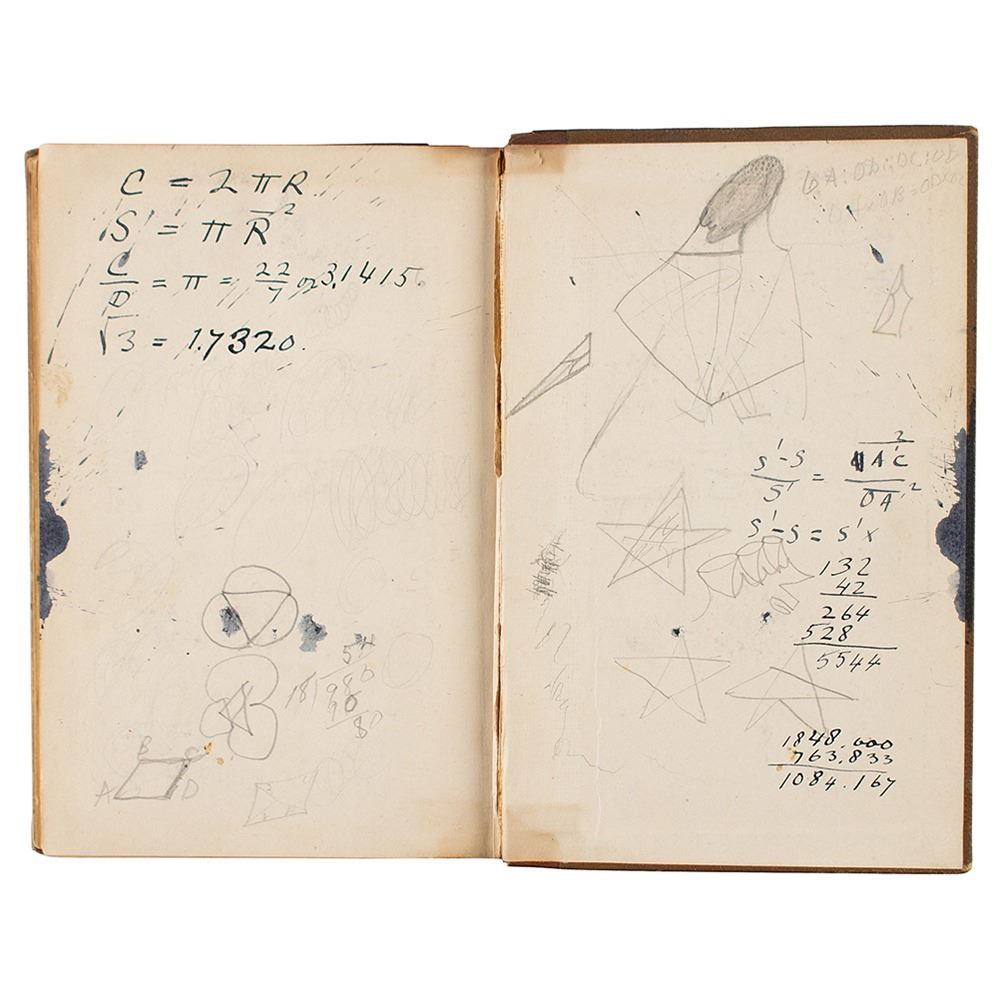 C = 2 πR
S' = π R̅²
C/D = π = 22/7 or 3.1415
√3 = 1.7320.
54
18) 980
90
8
B C
A D
OA : OD :: OC : OB
(S'-S)/S' = A'C²/OA'²
S'-S = S'x
132
42
264
528
5544
1848.000
763.833
1084.167